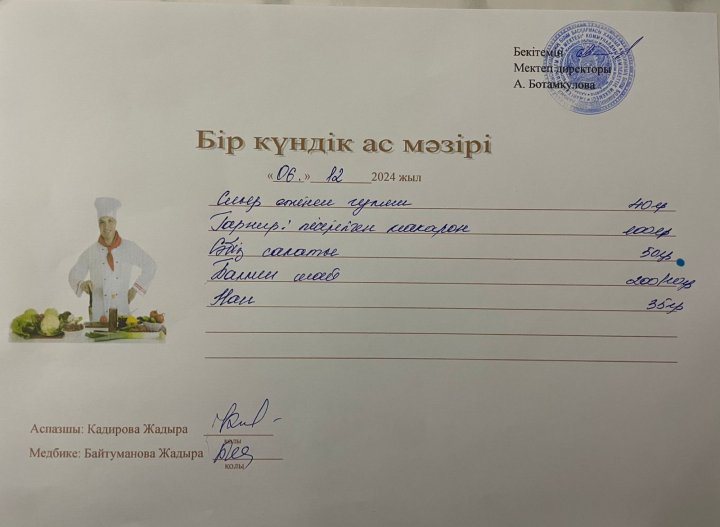 Бекітемін
Мектеп директоры
А. Ботамкулова
Бір күндік ас мәзірі
«06.» 12 2024 жыл
Сиыр етінен гуляш 40гр
Гарнир: пісірілген макарон 100гр
Сәбіз салаты 50гр
Балмен шай 200/10гр
Нан 35гр
Аспазшы: Кадирова Жадыра
қолы
Медбике: Байтуманова Жадыра
қолы